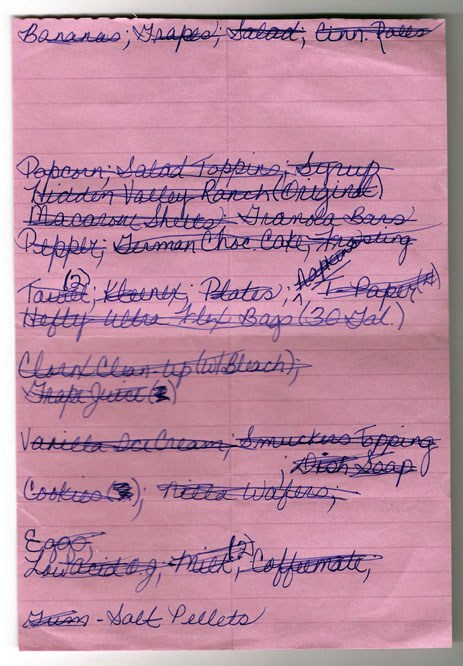 Bananas; Grapes; Salad; Cinn. Rolls
Popcorn; Salad Toppins; Syrup
Hidden Valley Ranch (Original)
Macaroni Shells - Granola Bars
Pepper; German Choc. Cake, Frosting
Napkins
Towel (2); Kleenex; Plates; ^ T-Paper
Hefty Ultra Flex Bags (30 Gal.)
Clorox Clean-up (w/Bleach);
Grape Juice
Vanilla Ice Cream; Smuckers Topping
; Dish Soap
Cookies; Nilla Wafers;
Eggs,
Low acid O.J, Milk (2), Coffeemate,
Gum - Salt Pellets